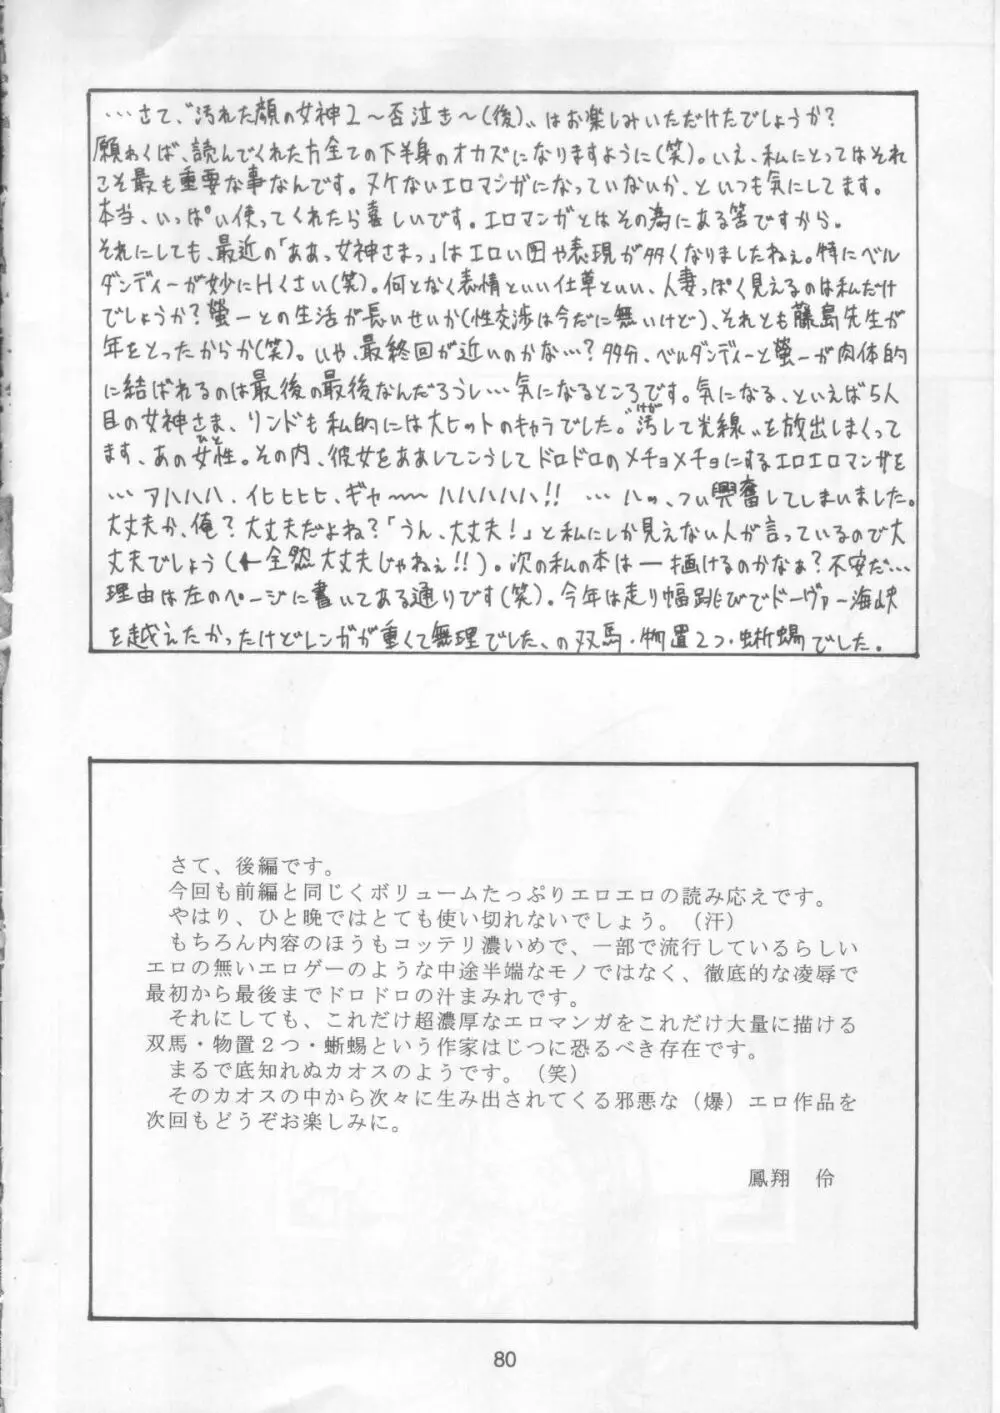 …さて、〝汚れた顔の女神2～否泣き～(後)〟はお楽しみいただけたでしょうか?
願わくば、読んでくれた方全ての下半身のオカズになりますように(笑)。いえ、私にとってはそれ
こそ最も重要な事なんです。ヌケないエロマンガになっていないか、といつも気にしてます。
本当、いっぱい使ってくれたら喜しいです。エロマンガとはその為にある筈ですから。
それにしても、最近の「ああっ女神さまっ」はエロい図や表現が多くなりましたねぇ。特にベル
ダンディーが妙にHくさい(笑)。何となく表情といい仕草といい、人妻っぽく見えるのは私だけ
でしょうか?螢一との生活が長いせいか(性交渉は今だに無いけど)、それとも藤島先生が
年をとったからか(笑)。いや、最終回が近いのかな…?多分、ベルダンディーと螢一が肉体的
に結ばれるのは最後の最後なんだろうし…気になるところです。気になる、といえば5人
目の女神さま、リンドも私的には大ヒットのキャラでした。〝汚して光線〟を放出しまくって
ます、あの女性。その内、彼女をああしてこうしてドロドロのメチョメチョにするエロエロマンガを
…アハハハ、イヒヒヒヒ、ギャ～～ハハハハハ!! …ハッ、つい興奮してしまいました。
大丈夫か、俺?大丈夫だよね?「うん、大丈夫!」と私にしか見えない人が言っているので大
丈夫でしょう(←全然大丈夫じゃねぇ!!)。次の私の本は一描けるのかなぁ?不安だ…
理由は左のページに書いてある通りです(笑)。今年は走り幅跳びでドーヴァー海峡
を越えたかったけどレンガが重くて無理でした、の双馬・物置2つ・蜥蜴でした。
さて、後編です。
今回も前編と同じくボリュームたっぷりエロエロの読み応えです。
やはり、ひと晩ではとても使い切れないでしょう。(汗)
もちろん内容のほうもコッテリ濃いめで、一部で流行しているらしい
エロの無いエロゲーのような中途半端なモノではなく、徹底的な凌辱で
最初から最後までドロドロの汁まみれです。
それにしても、これだけ超濃厚なエロマンガをこれだけ大量に描ける
双馬・物置2つ・蜥蜴という作家はじつに恐るべき存在です。
まるで底知れぬカオスのようです。(笑)
そのカオスの中から次々に生み出されてくる邪悪な(爆)エロ作品を
次回もどうぞお楽しみに。
鳳翔 伶
80